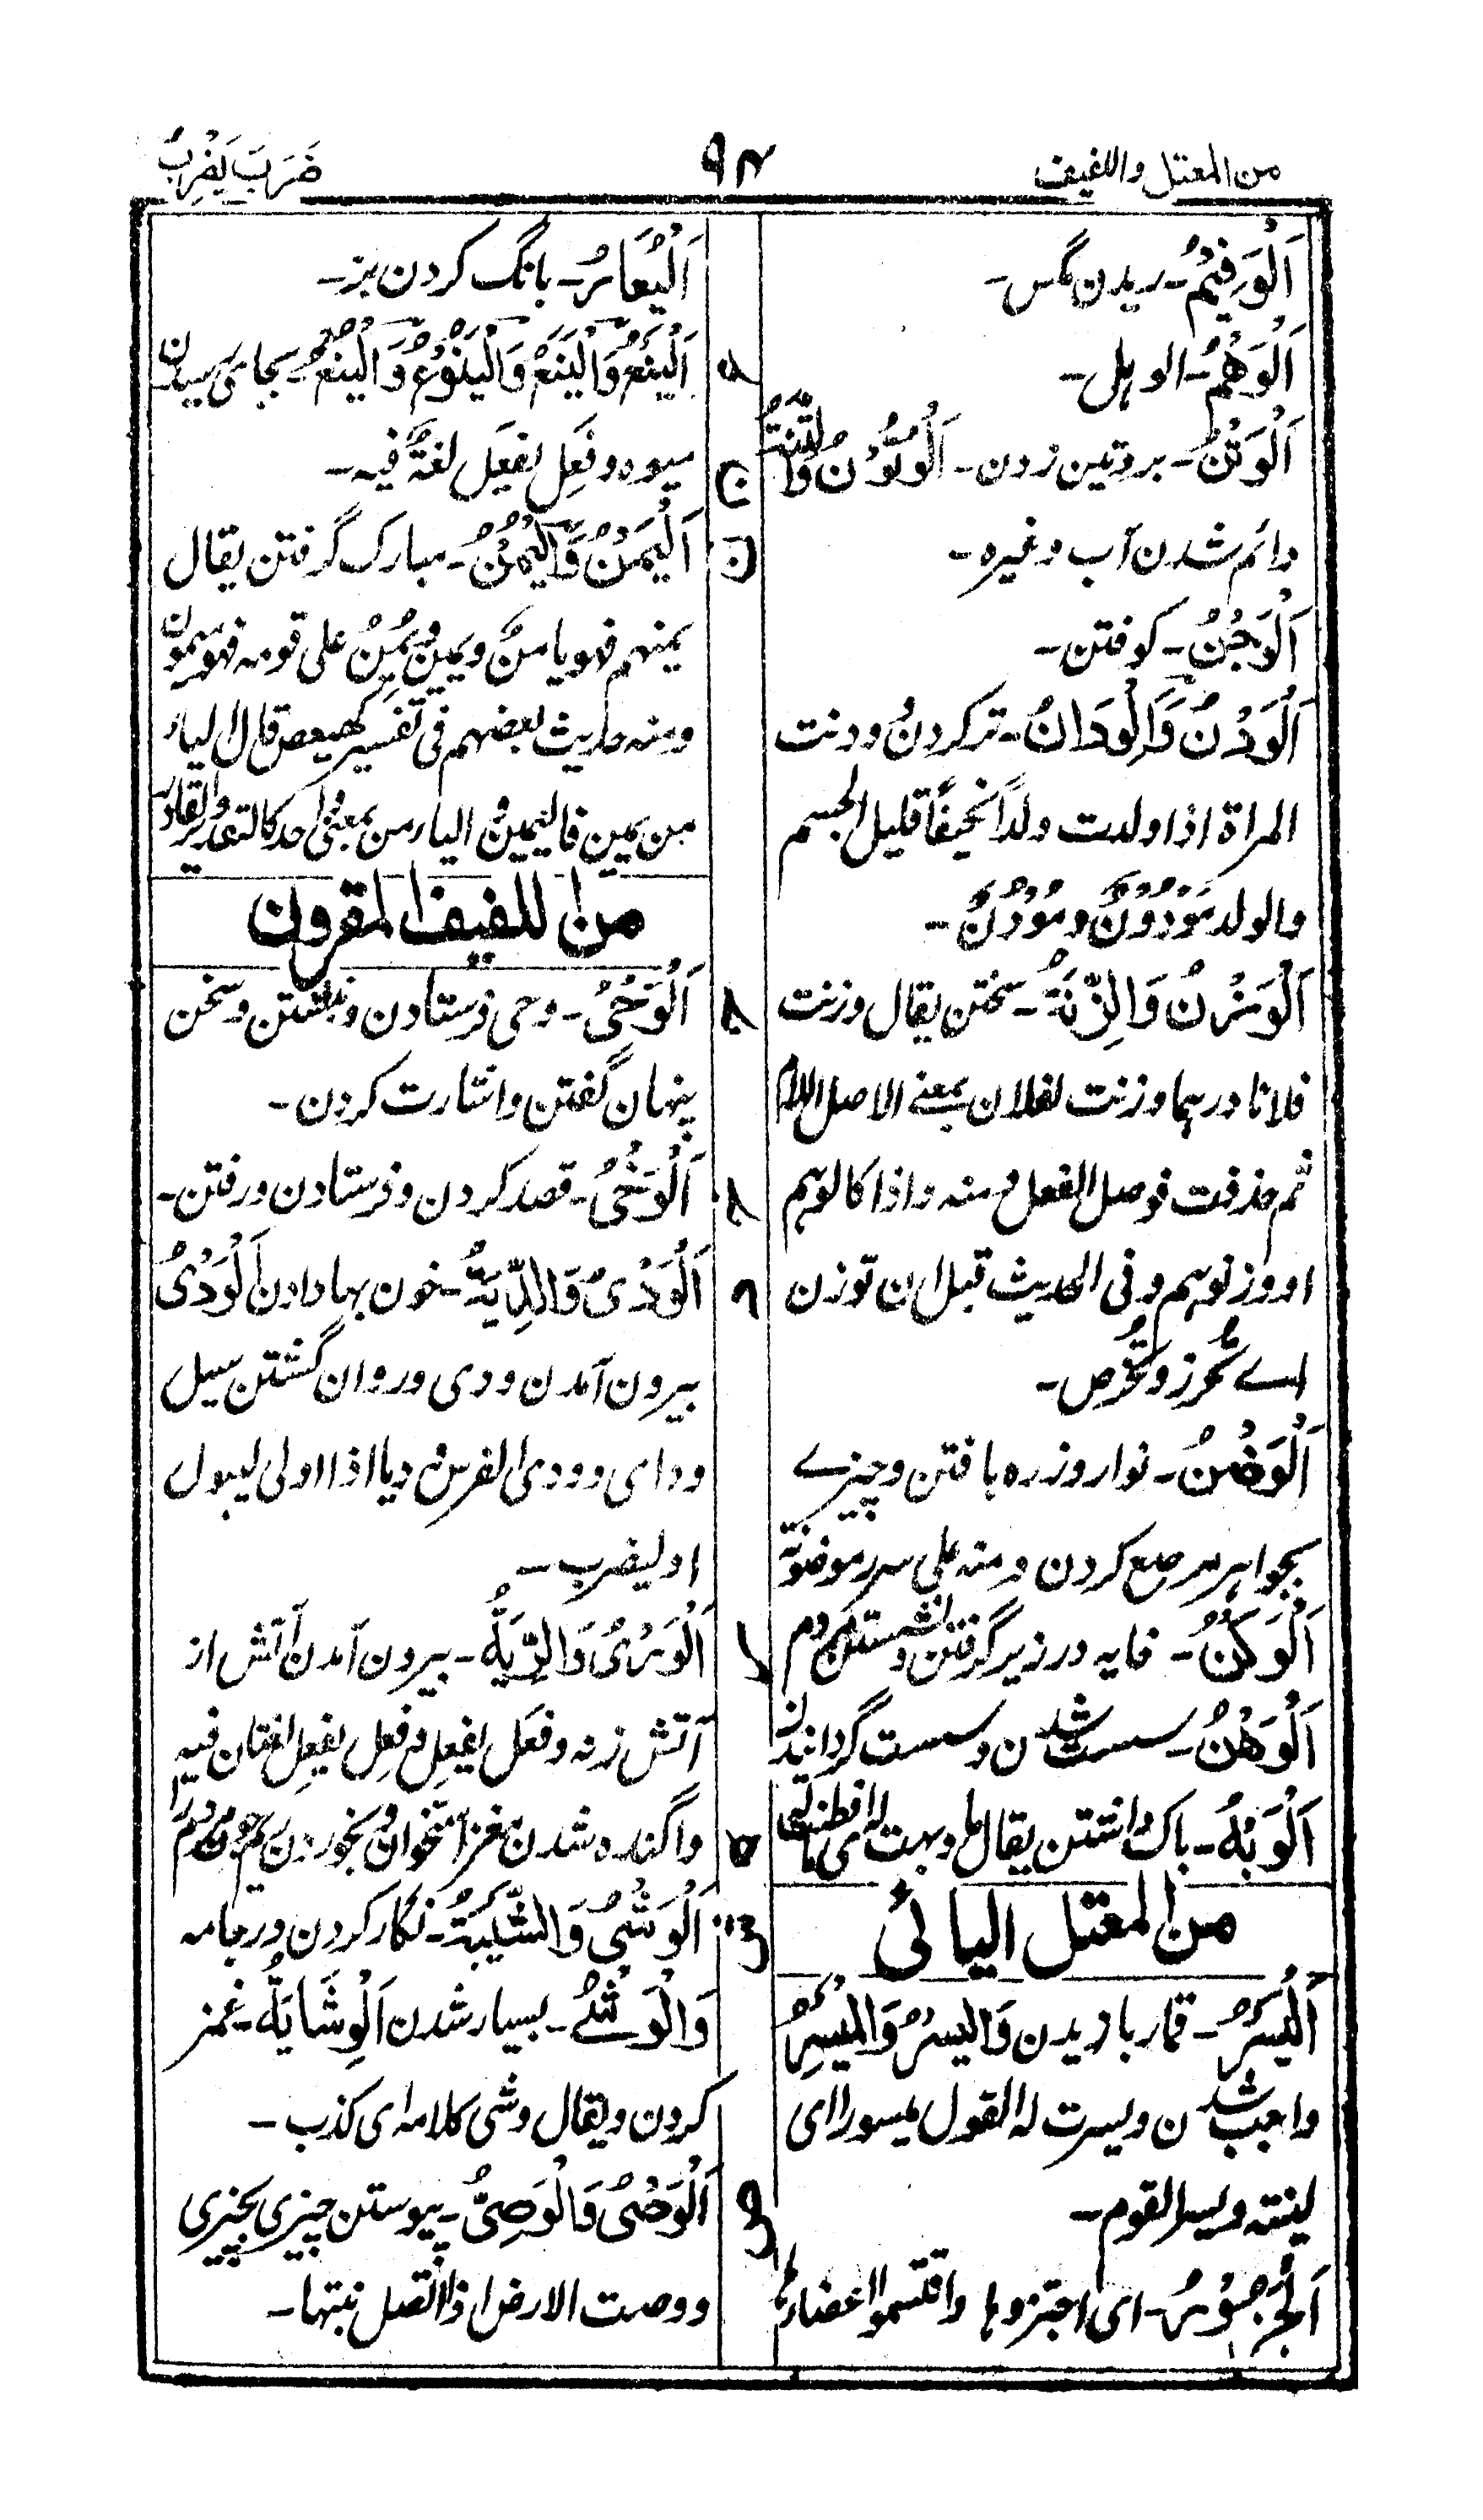 من المعتل واللفيف
۹۴
ضَرَبَ يَضْرِبُ
اَلْوَنِيْمُ۔ ریدن مگس۔
اَلْوَهْمُ۔ الوہل۔
اَلْوَتْنُ۔ بروتین زدن۔ اَلْوُتُوْنُ وَالتِّنَةُ
دائم شدن آب وغیرہ۔
اَلْوَجْنُ۔ کوفتن۔
اَلْوَدْنُ وَالْوِدَانُ۔ ترکردن وودنت
المراة اذا ولدت ولداً نحیفاً قلیل الجسم
والولد مَوْدُوْنٌ ومُوْدَنٌ۔
اَلْوَزْنُ وَالزِّنَةُ۔ سختن یقال وزنت
فلانا درہما وزنت لفلان بمعنے الاصل اللام
ثم حذفت فوصل الفعل ومنه واذا کالوہم
او وزنوہم وفی الحدیث قبل ان توزن
اے تُحرز وتُخرص۔
اَلْوَضْنُ۔ نوار وزرہ بافتن وچیزے
بجواہر مرصع کردن ومنه علی سرر موضونة
اَلْوَكْنُ۔ خایه در زیر گرفتن ونشستن مردم
اَلْوَهْنُ۔ سست شدن وسست گردانیدن
اَلْوَبْهُ۔ باک داشتن یقال ما وبهت له ای ما فطنت له
من المعتل الیائی
اَلْيَسْرُ۔ قمار بازیدن وَالیسرُ وَالْمَيْسِرُ
واجب شدن ویسرت له القول میسورا ای
لینته ویسر القوم۔
اَلْجَزُوْرُ۔ ای اجتزروہا واقتسموا اعضاءہا
اَلْيُعَارُ۔ بانگ کردن بز۔
اَلْيَنْعُ وَالْيَنَعُ وَالْيُنُوْعُ وَالْيُنْعُ۔ بجای رسیدن
میوہ وفَعِل یفعَل لغةٌ فیه۔
اَلْيَمْنُ وَّالْيُمْنُ۔ مبارک گرفتن یقال
یمنهم فهو یامنٌ ویمین ویُمِنُ علی قومه فهو میمون
ومنه حدیث بعضهم فی تفسیر کهیعص قال الیاء
من یمین فالیمین والیامن بمعنیً واحد کالقدیر والقادر
من اللفیف المقرون
اَلْوَحْیُ۔ وحی فرستادن ونبشتن وسخن
پنہان گفتن واشارت کردن۔
اَلْوَخْیُ۔ قصد کردن وفرستادن ورفتن۔
اَلْوَدْیُ وَالدِّيَةُ۔ خون بہا دادن اَلْوَدْیُ
بیرون آمدن ودی وروان گشتن سیل
ودای وودی الفرس ودیا اذا ادلی لیبول
او لیضرب۔
اَلْوَرْیُ وَالرِّيَةُ۔ بیرون آمدن آتش از
آتش زنه وفعَل یفعِل وفعِل یفعِل لغتان فیه
واگندہ شدن مغز استخوان وبخوردن ریم جوف مردم را
اَلْوَشْیُ وَالشِّيَةُ۔ نگار کردن در جامه
وَالْوَشْئُے۔ بسیار شدن اَلْوِشَايَةُ۔ غمز
کردن ویقال وشی کلامه ای کذب۔
اَلْوَصْیُ وَالْوَصِیُّ۔ پیوستن چیزی بچیزی
ووصت الارض اذا اتصل نبتها۔